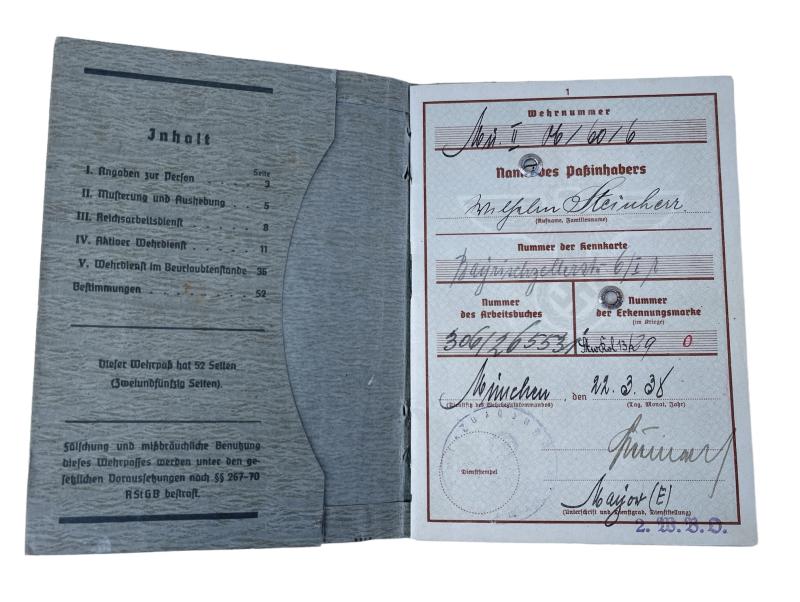 Inhalt
Seite
I. Angaben zur Person . . . . 3
II. Musterung und Aushebung . . 5
III. Reichsarbeitsdienst . . . . 8
IV. Aktiver Wehrdienst . . . . 11
V. Wehrdienst im Beurlaubtenstande 36
Bestimmungen . . . . . . 52
Dieser Wehrpaß hat 52 Seiten
(Zweiundfünfzig Seiten).
Fälschung und mißbräuchliche Benutzung
dieses Wehrpasses werden unter den ge-
setzlichen Voraussetzungen nach §§ 267–70
RStGB bestraft.
1
Wehrnummer
Mü. II 06/60/6
Name des Paßinhabers
Wilhelm Steinherr
(Rufname, Familienname)
Nummer der Kennkarte
Bayrischzellerstr 6/I
Nummer
des Arbeitsbuches
Nummer
der Erkennungsmarke
(im Kriege)
306/26553
29 0
München, den 22. 3. 38
(Dienstsitz des Wehrbezirkskommandos) (Tag, Monat, Jahr)
Dienststempel
Major (E)
(Unterschrift und Dienstgrad, Dienststellung)
2. W. B. O.